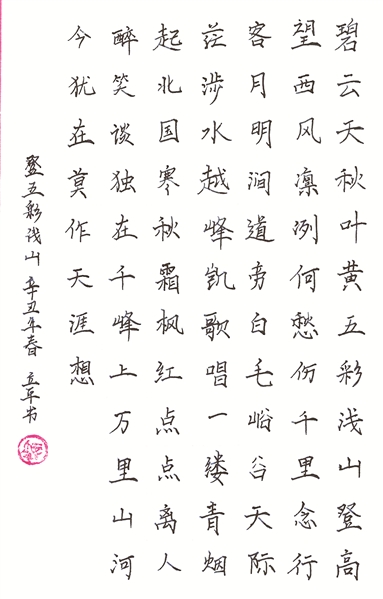 碧云天秋叶黄五彩浅山登高
望西风凛冽何愁伤千里念行
客月明涧道旁白毛峪谷天际
茫涉水越峰凯歌唱一缕青烟
起北国寒秋霜枫红点点离人
醉笑谈独在千峰上万里山河
今犹在莫作天涯想
登五彩浅山 辛丑年春 立平书